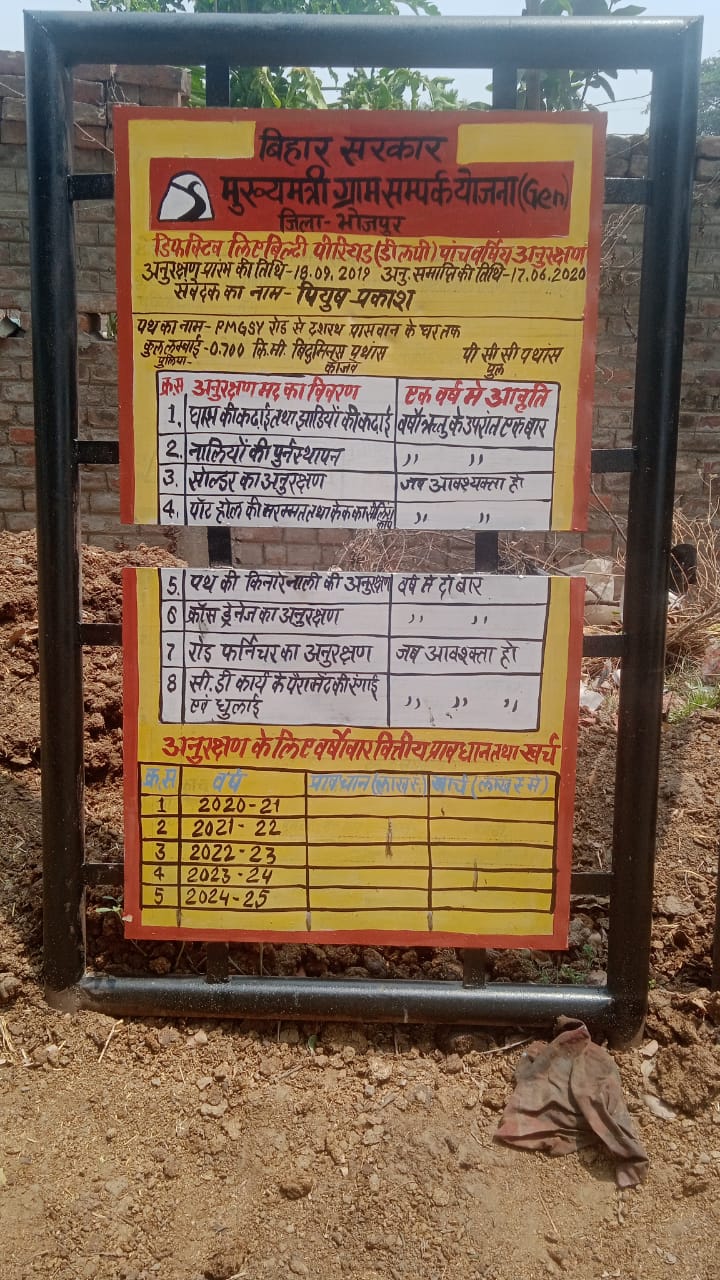 बिहार सरकार
मुख्यमंत्री ग्राम सम्पर्क योजना (Gen)
जिला- भोजपुर
डिफेक्टिव लिएबिल्टी पीरियड (डी लपी) पांच वर्षिय अनुरक्षण
अनुरक्षण प्रारंभ की तिथि-18.09.2019 अनु समाप्ति की तिथि-17.06.2020
संवेदक का नाम- पियुष प्रकाश
पथ का नाम- PMGSY रोड से दशरथ पासवान के घर तक
कुल लम्बाई-0.700 कि.मी. बिटुमिनस पथांस पी सी सी पथांस
पुलिया- कॉजवे पुल
क्र.स अनुरक्षण मद का विवरण एक वर्ष मे आवृति
1. घास की कटाई तथा झाडियों की कटाई वर्षा ऋतु के उपरांत एक बार
2. नालियों की पुर्नस्थापन ,, ,,
3. सोल्डर का अनुरक्षण जब आवश्यक्ता हो
4. पॉट होल की मरम्मत तथा केक का ,, ,,
5. पथ की किनारे नाली की अनुरक्षण वर्ष मे दो बार
6 क्रॉस ड्रेनेज का अनुरक्षण ,, ,,
7 रोड फर्निचर का अनुरक्षण जब आवश्क्ता हो
8 सी. डी कार्य के पैरामेट की रंगाई
एवं धुलाई ,, ,, ,,
अनुरक्षण के लिए वर्षोवार वित्तिय प्रावधान तथा खर्च
क्र.स वर्ष प्रावधान (लाख रु) खर्च (लाख रु मे)
1 2020-21
2 2021-22
3 2022-23
4 2023-24
5 2024-25